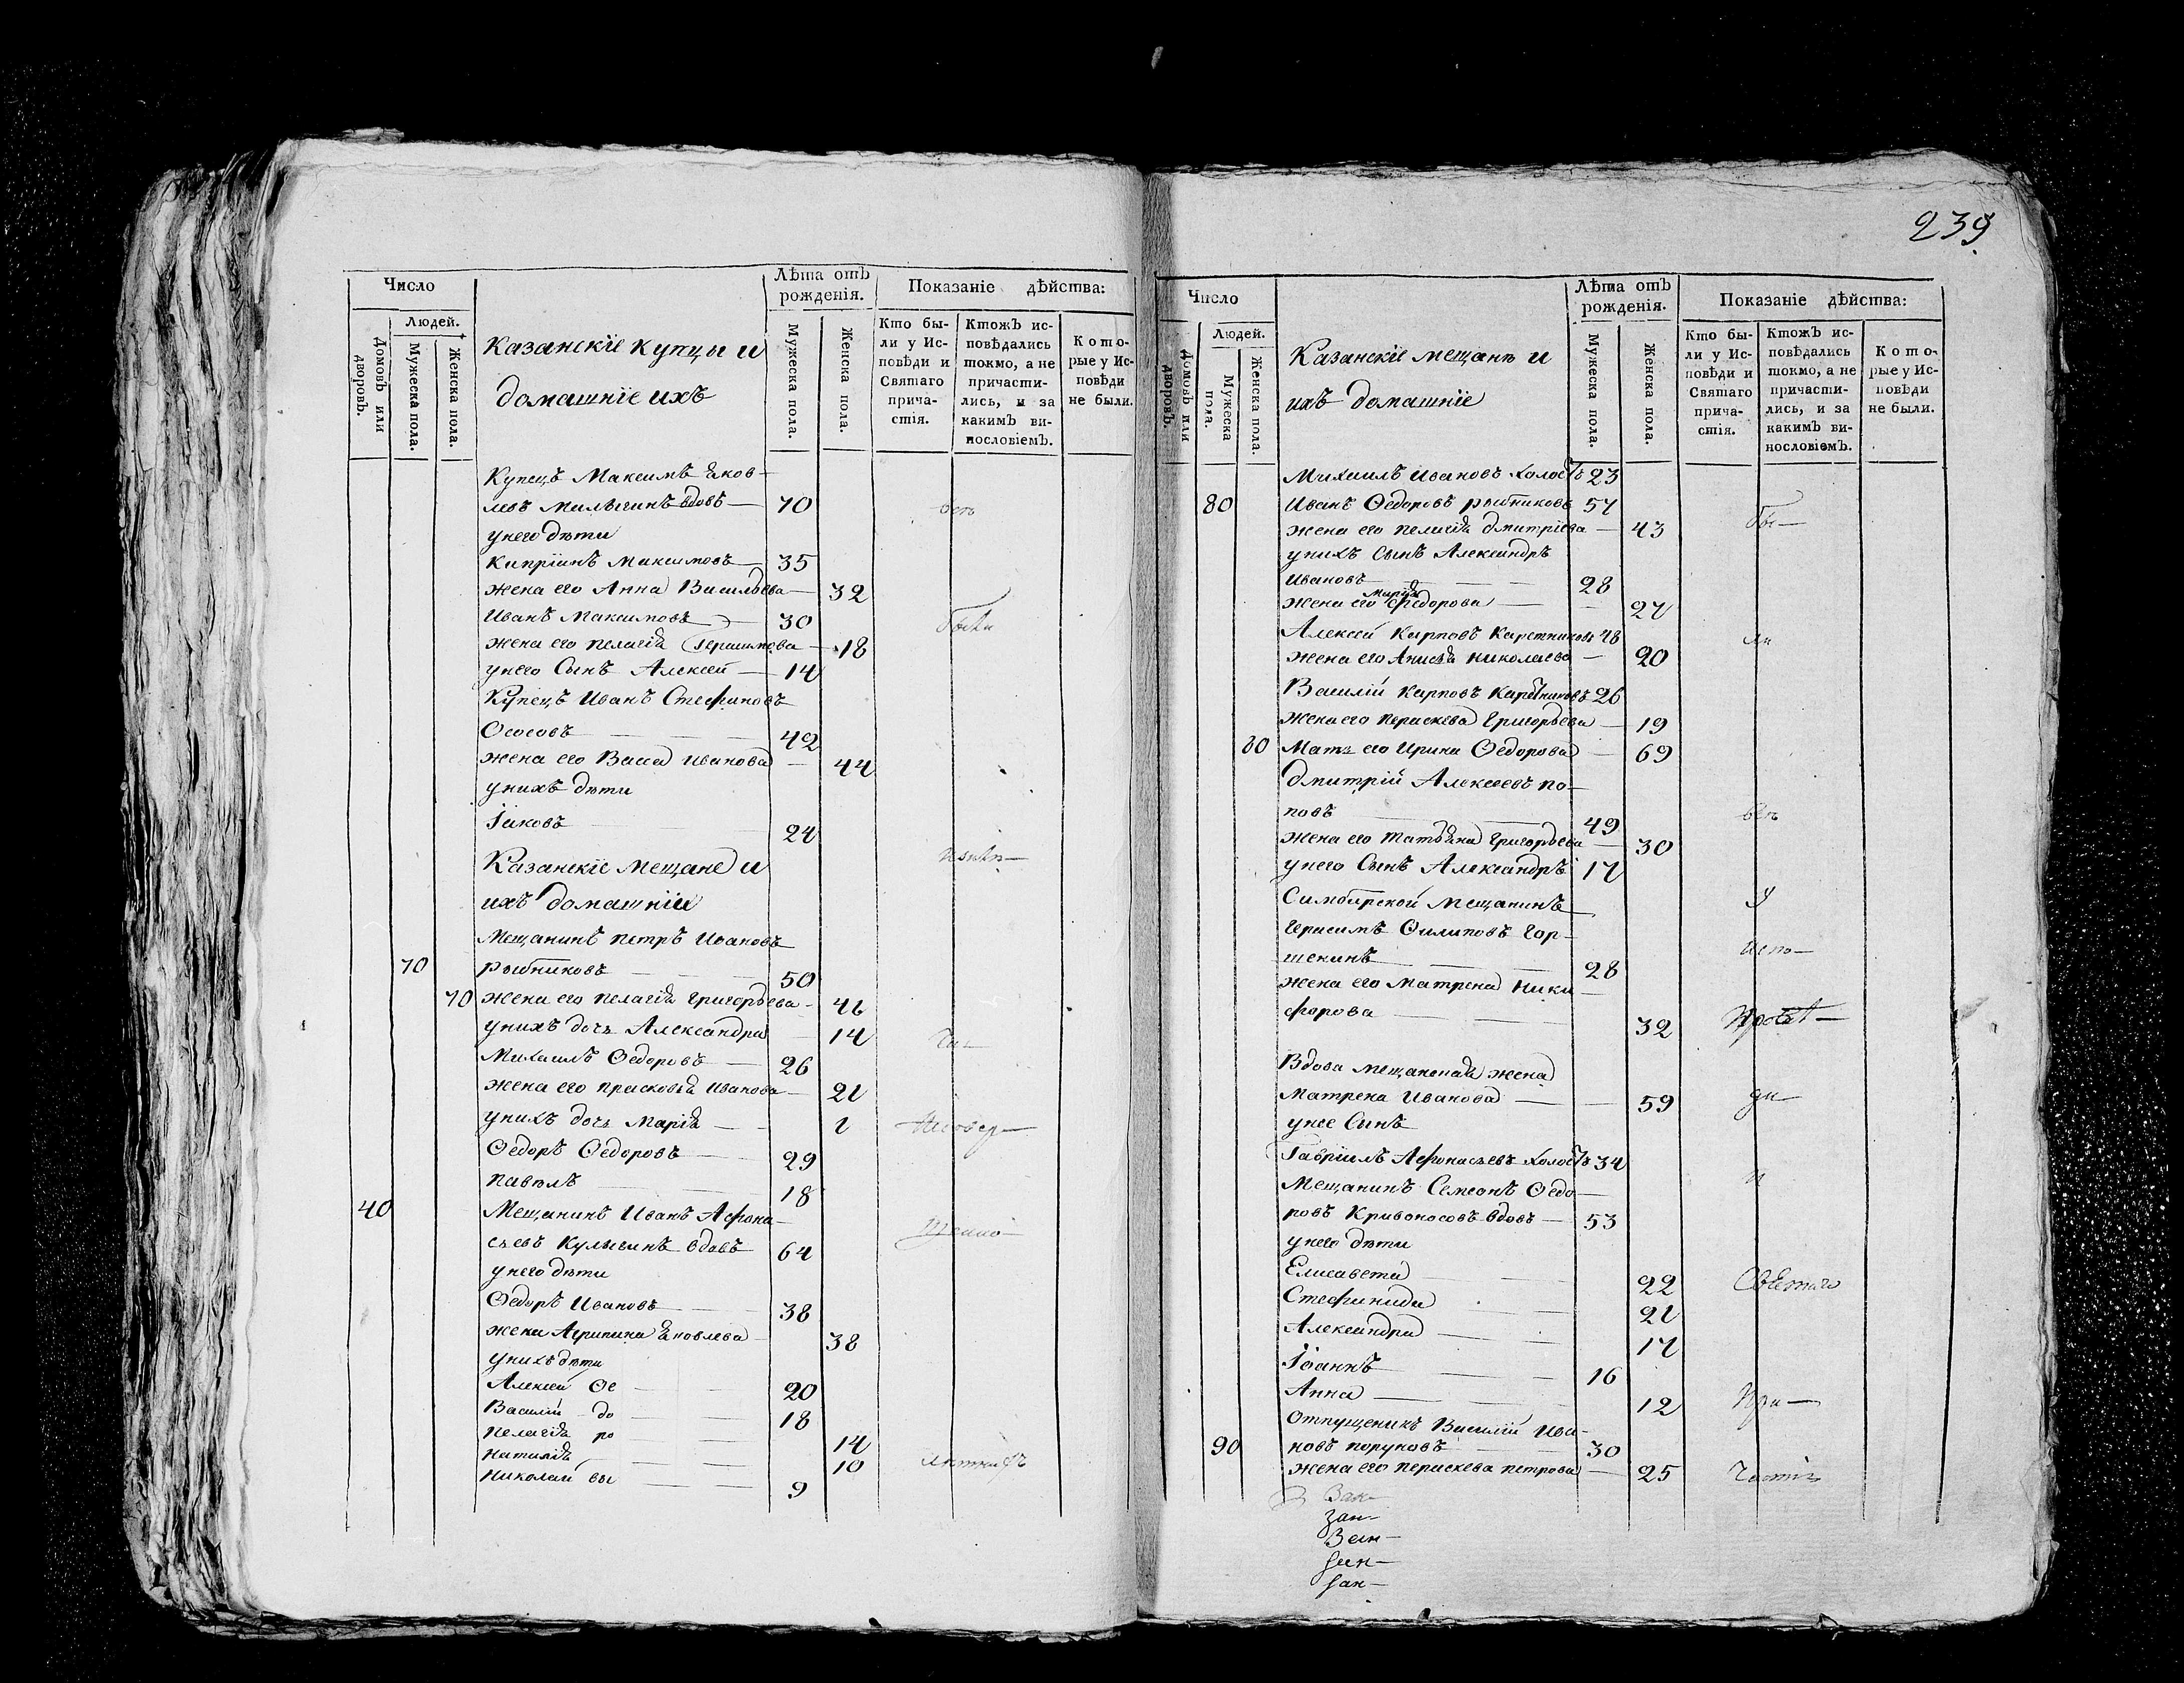 Число
Людей.
Домовъ или дворовъ.
Мужеска пола.
Женска пола.
Казанскіе купцы и
домашніе ихъ
Лѣта отъ
рожденія.
Мужеска пола.
Женска пола.
Показаніе дѣйства:
Кто бы-
ли у Ис-
повѣди и
Святаго
прича-
стія.
Ктожъ ис-
повѣдались
токмо, а не
причасти-
лись, и за
какимъ ви-
нословіемъ.
Кото-
рые у Ис-
повѣди
не были.
Купецъ Максимъ Яков-
левъ вдовъ 70
унего дѣти
Кипріянъ Максимовъ 35
жена его Анна Васильева 32
Иванъ Максимовъ 30
Были
жена его Пелагія Герасимова 18
унего Сынъ Алексей 14
Купецъ Иванъ Стефановъ
Ососовъ 42
жена его Васса Иванова 44
унихъ дѣти
Іаковъ 24
Казанскіе Мещане и
ихъ домашніи
Мещанинъ Петръ Ивановъ
70 рыбниковъ 50
70 жена его Пелагія Григорьева 46
унихъ дочь Александра 14
Михаилъ Ѳедоровъ 26
жена его Прасковья Иванова 21
унихъ дочь Марія 1
Ѳедоръ Ѳедоровъ 29
Павелъ 18
40 Мещанинъ Иванъ Афона-
сьевъ Кулыгинъ вдовъ 64
унего дѣти
Ѳедоръ Ивановъ 38
жена Агрипина Яковлева 38
унихъ дѣти
Алексей Ѳе 20
Василій до 18
Пелагія ро 14
Наталія 10
Николай вы 9
239
Число
Людей.
Домовъ или дворовъ.
Мужеска пола.
Женска пола.
Казанскіе мещанѣ и
ихъ домашніе
Лѣта отъ
рожденія.
Мужеска пола.
Женска пола.
Показаніе дѣйства:
Кто бы-
ли у Ис-
повѣди и
Святаго
прича-
стія.
Ктожъ ис-
повѣдались
токмо, а не
причасти-
лись, и за
какимъ ви-
нословіемъ.
Кото-
рые у Ис-
повѣди
не были.
Михаилъ Ивановъ холостъ 23
80 Иванъ Ѳедоровъ рыбниковъ 57
бы-
жена его Пелагія Дмитріева 43
унихъ сынъ Александръ
Ивановъ 28
жена его Марія Ѳедорова 27
Алексей Карповъ Каретниковъ 48
ли
жена его Анисья Николаева 20
Василій Карповъ Каретниковъ 26
жена его Параскева Григорьева 19
80 Мать его Ирина Ѳедорова 69
Дмитрій Алексеевъ по-
повъ 49
всѣ
жена его Татьяна Григорьева 30
унего Сынъ Александръ 17
Симбирской Мещанинъ
у
Герасимъ Филиповъ Гор-
испо-
шенинъ 28
жена его Матрена Ники
форова 32
Вдова мещанская жена
Матрена Иванова 59
ди
унее Сынъ
Гавріилъ Афонасьевъ холостъ 34
и
Мещанинъ Семеонъ Ѳедо-
ровъ Кривоносовъ вдовъ 53
унего дѣти
Елисавета 22
Святаго
Стефанида 21
Александра 17
Іоаннъ 16
Анна 12
При-
Отпущеникъ Василій Ива-
90 новъ поруновъ 30
жена его Параскева Петрова 25
частія
Зак-
Зан-